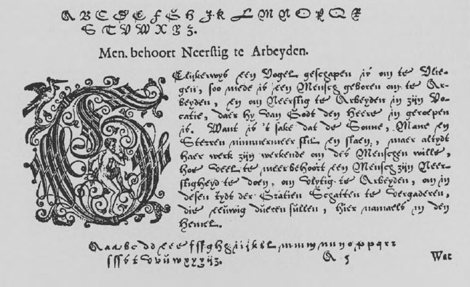 A B C D E F G H I K L M N O P Q R
S T V W X Y Z.
Men behoort Neerstig te Arbeyden.
Gelijkerwys een Vogel geschapen is om te Vlie-
gen, soo mede is een Mensch geboren om te Ar-
beyden, en om Neerstig te Arbeyden in zijn Vo-
catie, daer hy van Godt den Heere in geroepen
is. Want is 't sake dat de Sonne, Mane en
Sterren nimmermeer stil en staen, maer altydt
haer werk zijn werkende om des Menschen wille,
hoe veel te meer behoort een Mensch zijn Neer-
stigheyt te doen, om vlytig te Arbeyden, om in
desen tydt der Gratien Schatten te vergaderen,
die eeuwig dueren sullen, hier namaels in den
Hemel.
A 5 Wat